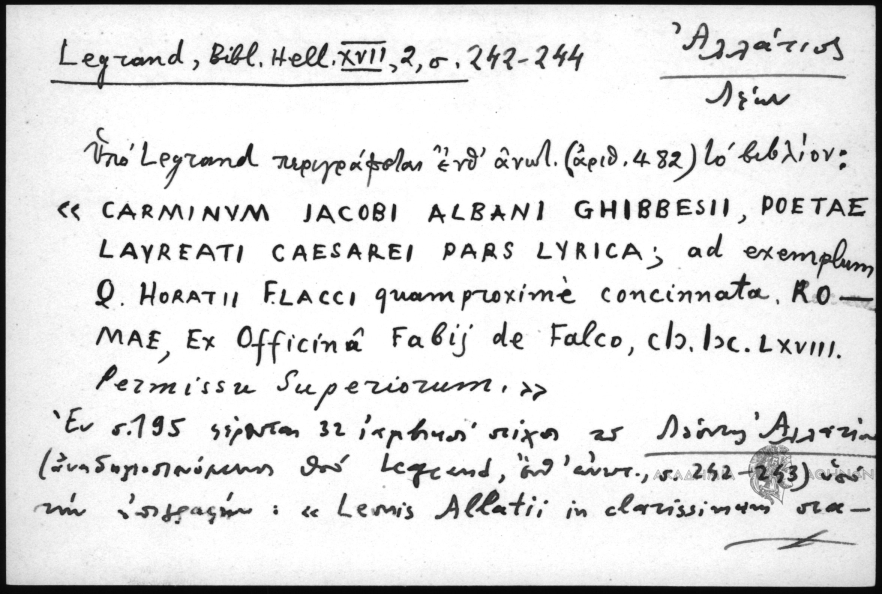 Legrand, Bibl. Hell. XVII, 2, σ. 242-244
Ἀλλάτιος
Λέων
Ὑπό Legrand περιγράφεται ἔνθ' ἀνωτ. (ἀριθ. 482) τό βιβλίον:
« CARMINVM JACOBI ALBANI GHIBBESII, POETAE
LAVREATI CAESAREI PARS LYRICA; ad exemplum
Q. HORATII FLACCI quamproximè concinnata. RO-
MAE, Ex Officinâ Fabij de Falco, cIɔ. Iɔc. LXVIII.
Permissu Superiorum. »
Ἐν σ. 195 φέρονται 32 ἰαμβικοί στίχοι τοῦ Λέοντος Ἀλλατίου
(ἀναδημοσιευόμενοι ὑπό Legrand, ἔνθ' ἀνωτ., σ. 242-243) ὑπό
τήν ἐπιγραφήν: « Leonis Allatii in clarissimum ora-
ΑΚΑΔΗΜΙΑ ΑΘΗΝΩΝ